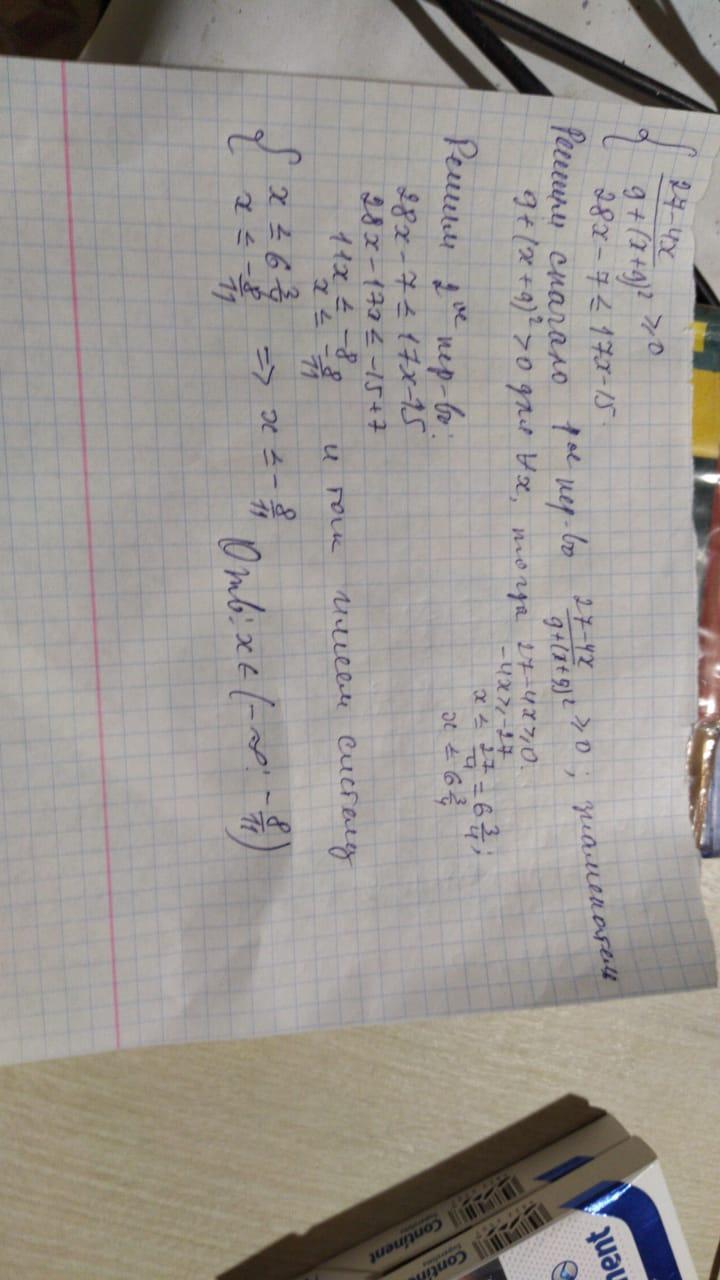 { 27-4x / 9+(x+9)² ≥ 0
28x-7 ≤ 17x-15.
Решим сначало 1ое нер-во 27-4x / 9+(x+9)² ≥ 0; знаменатель
9+(x+9)² > 0 для ∀x, тогда 27-4x ≥ 0.
-4x ≥ -27
x ≤ 27/4 = 6 3/4;
x ≤ 6 3/4
Решим 2ое нер-во:
28x-7 ≤ 17x-15
28x-17x ≤ -15+7
11x ≤ -8
x ≤ -8/11 и так имеем систему
{ x ≤ 6 3/4
x ≤ -8/11 => x ≤ -8/11
Ответ: x ∈ (-∞; -8/11)
Continent
Continent
nent